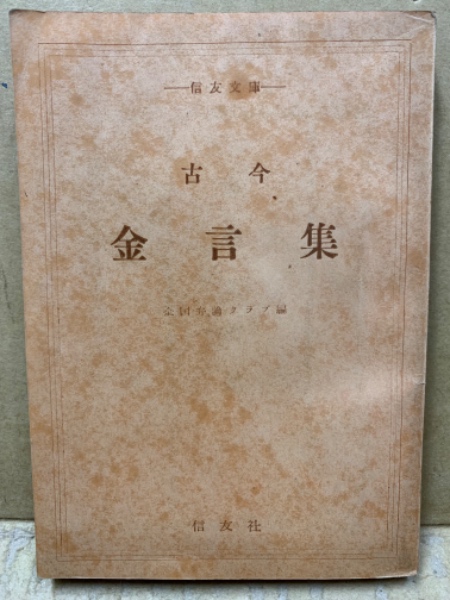 信友文庫
古今
金言集
全国弁論クラブ編
信友社